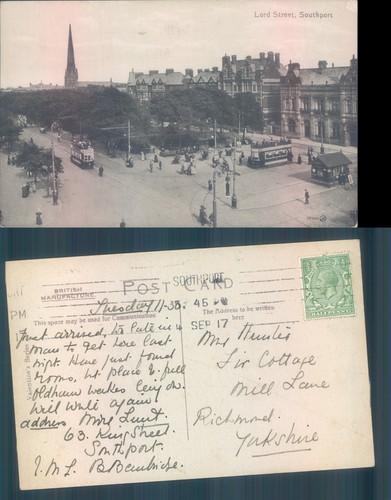 Lord Street, Southport
BRITISH
MANUFACTURE
POST CARD
SOUTHPORT
45 PM
SEP 17
PM
Tuesday 11-30
This space may be used for Communication
The Address to be written
here
Just arrived, to late in
Man to get here last
night. Have just found
rooms, but place is full
Oldham wakes being on.
Will write again
address Mrs Lunt
63. King Street.
Southport.
Mrs Hunter
Fir Cottage
Mill Lane
Richmond
Yorkshire
HALFPENNY